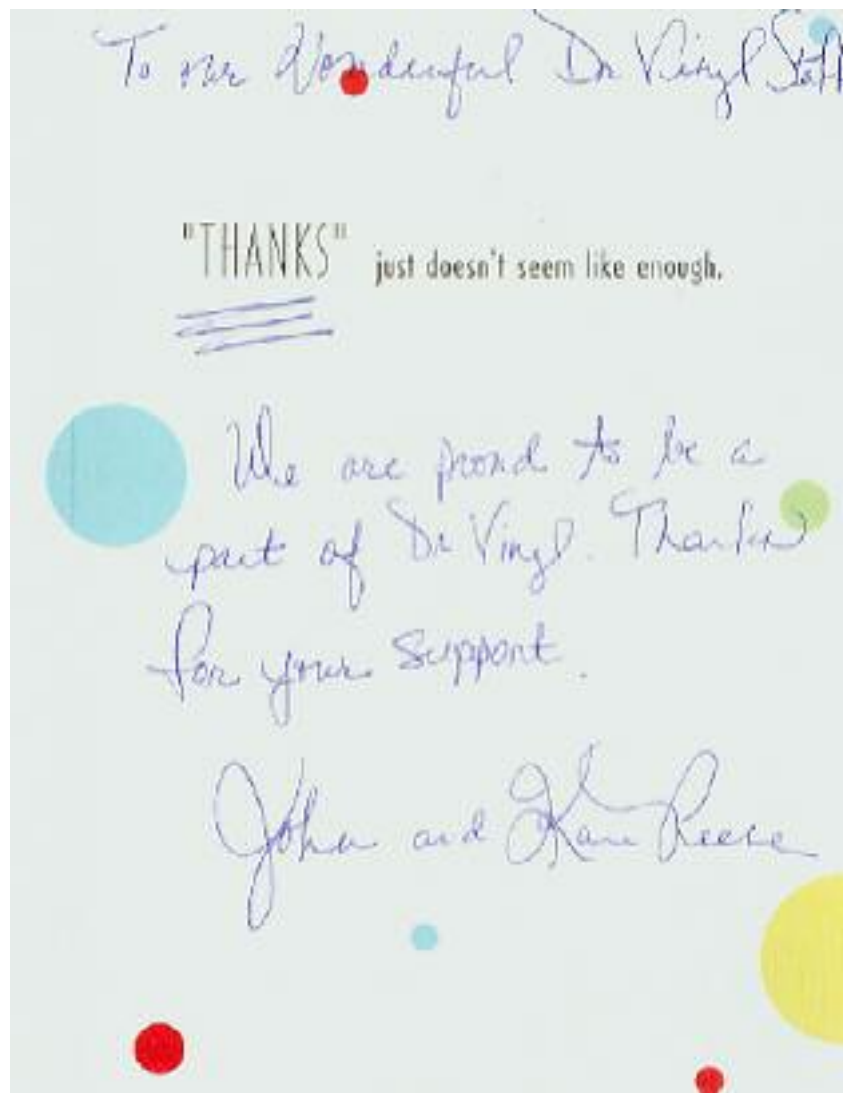 To our Wonderful Dr Vinyl Staff
"THANKS" just doesn't seem like enough.
We are proud to be a
part of Dr Vinyl. Thanks
for your support.
John and Kare Reese